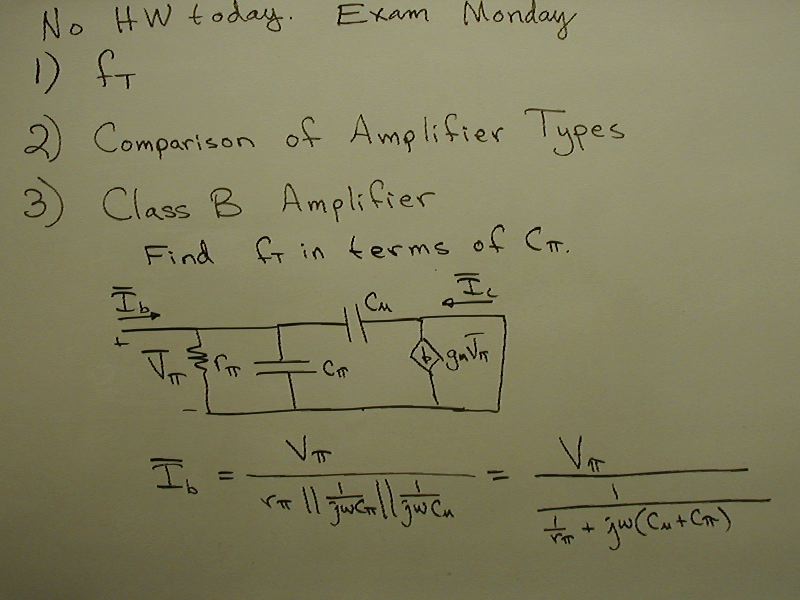 No HW today. Exam Monday
1) fT
2) Comparison of Amplifier Types
3) Class B Amplifier
Find fT in terms of Cπ.
Ib Cμ Ic
+ Vπ rπ Cπ gmVπ
-
Ib = Vπ / (rπ || 1/jωCπ || 1/jωCμ) = Vπ / (1 / (1/rπ + jω(Cμ + Cπ)))